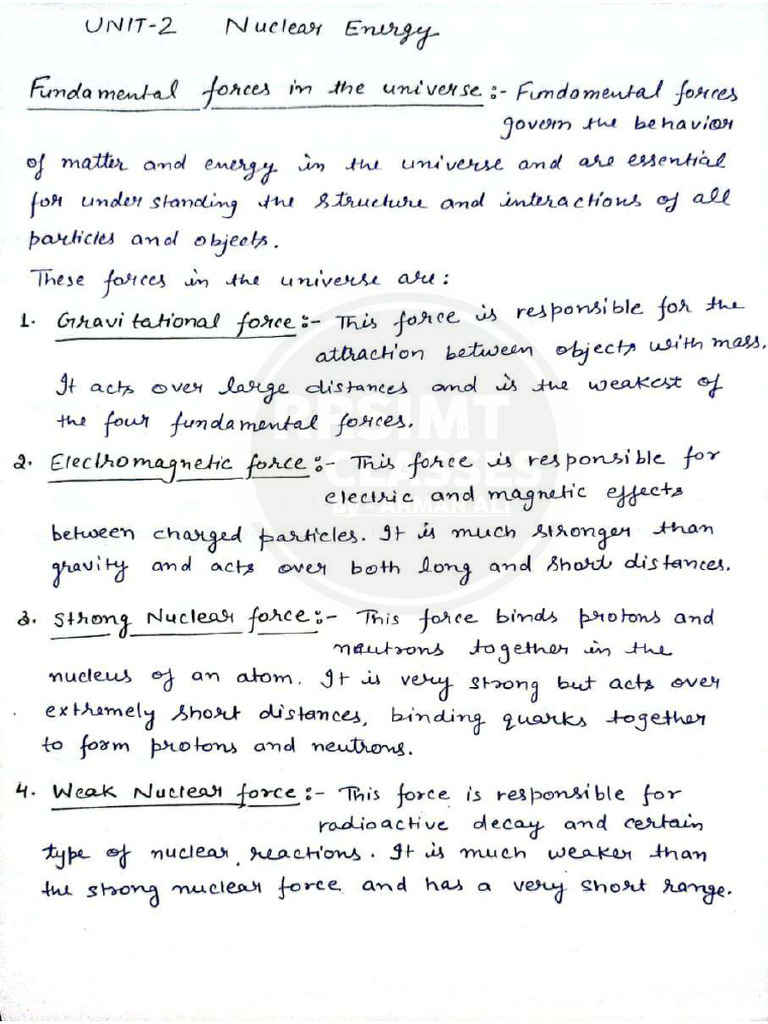 UNIT-2 Nuclear Energy
Fundamental forces in the universe :- Fundamental forces
govern the behavior
of matter and energy in the universe and are essential
for understanding the structure and interactions of all
particles and objects.
These forces in the universe are :
1. Gravitational force :- This force is responsible for the
attraction between objects with mass.
It acts over large distances and is the weakest of
the four fundamental forces.
RPSIMT
CLASSES
By - ARMAN ALI
2. Electromagnetic force :- This force is responsible for
electric and magnetic effects
between charged particles. It is much stronger than
gravity and acts over both long and short distances.
3. Strong Nuclear force :- This force binds protons and
neutrons together in the
nucleus of an atom. It is very strong but acts over
extremely short distances, binding quarks together
to form protons and neutrons.
4. Weak Nuclear force :- This force is responsible for
radioactive decay and certain
type of nuclear reactions. It is much weaker than
the strong nuclear force and has a very short range.